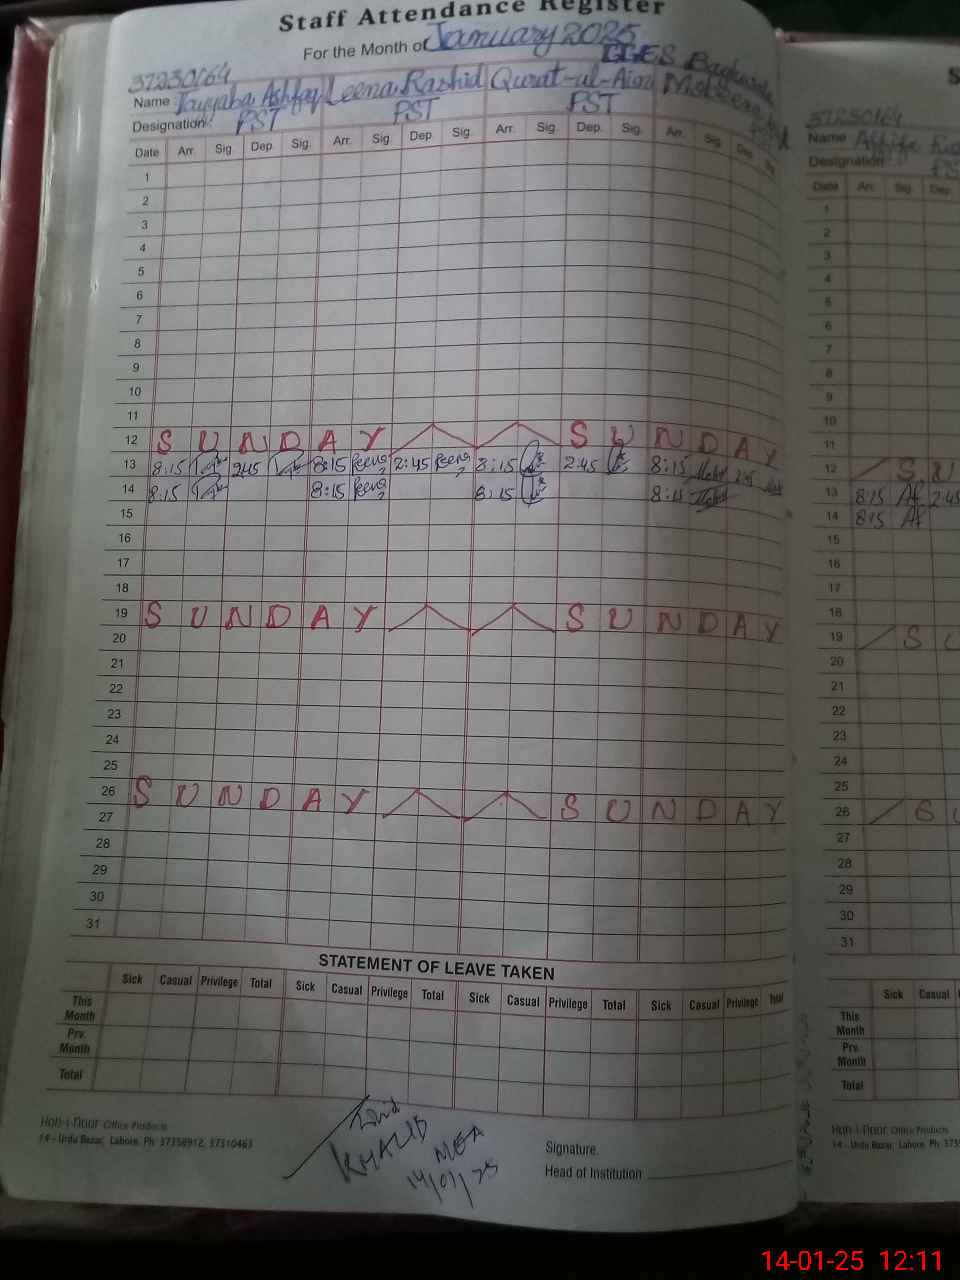 Staff Attendance Register
For the Month of January 2025
37230164
Name Tayyaba Ashfaq Leena Rashid Qurat-ul-Ain
Designation: PST PST PST
Date Arr. Sig. Dep. Sig. Arr. Sig. Dep. Sig. Arr. Sig. Dep. Sig. Arr. Sig. Dep.
1
2
3
4
5
6
7
8
9
10
11
12 S U N D A Y S U N D A Y
13 8:15 2:45 8:15 Leena 2:45 Leena 8:15 2:45 8:15 2:45
14 8:15 8:15 Leena 8:15 8:15
15
16
17
18
19 S U N D A Y S U N D A Y
20
21
22
23
24
25
26 S U N D A Y S U N D A Y
27
28
29
30
31
STATEMENT OF LEAVE TAKEN
Sick Casual Privilege Total Sick Casual Privilege Total Sick Casual Privilege Total Sick Casual Privilege Total
This Month
Prv. Month
Total
KHALID
MEA
14/01/25
Signature.
Head of Institution
Office Products
14 - Urdu Bazar, Lahore. Ph: 37358912, 37310463
37230164
Name
Designation
Date Arr. Sig. Dep.
1
2
3
4
5
6
7
8
9
10
11
12 S U
13 8:15 Af 2:45
14 8:15 Af
15
16
17
18
19 S U
20
21
22
23
24
25
26 S U
27
28
29
30
31
Sick Casual
This Month
Prv. Month
Total
Office Products
14 - Urdu Bazar, Lahore. Ph:
14-01-25 12:11